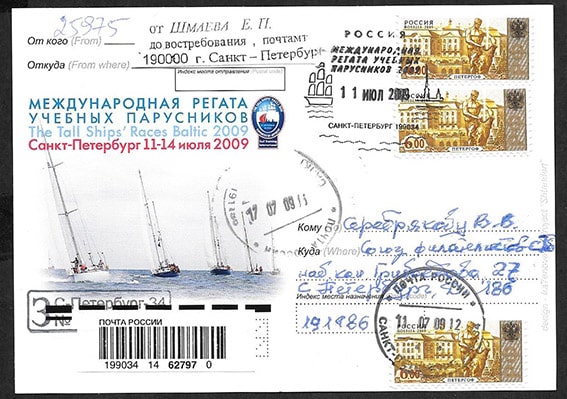 25975
от Шмаева Е. П.
От кого (From)
до востребования, почтамт
Откуда (From where)
190000 г. Санкт-Петербург
Индекс места отправления
МЕЖДУНАРОДНАЯ РЕГАТА
УЧЕБНЫХ ПАРУСНИКОВ
The Tall Ships' Races Baltic 2009
Санкт-Петербург 11-14 июля 2009
МЕЖДУНАРОДНАЯ
РЕГАТА УЧЕБНЫХ
ПАРУСНИКОВ 2009
11 ИЮЛ 2009
САНКТ-ПЕТЕРБУРГ 199034
РОССИЯ
ПЕТЕРГОФ
РОССИЯ
6.00
ПЕТЕРГОФ
191186
17 07 09
ПОЧТА
Кому Серебрякову В.В.
Куда (Where) Союз филателистов
наб кан Грибоедова 27
Индекс места назначения
С Петербург 186
191986
С-Петербург 34
З №
ПОЧТА РОССИИ
199034 14 62797 0
ПОЧТА РОССИИ
11 07 09 12
САНКТ
РОССИЯ
6.00
ПЕТЕРГОФ